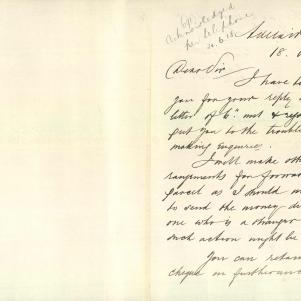 acknowledged
per telephone
20.6.18
Adelaid
18.
Dear Sir
I have to
you for your reply
letter of 6th inst & re
put you to the troubl
making enquiries.
I will make oth
rangements for forwar
parcel as I should
to send the money di
one who is a stranger
such action might be
You can retain
cheque or further